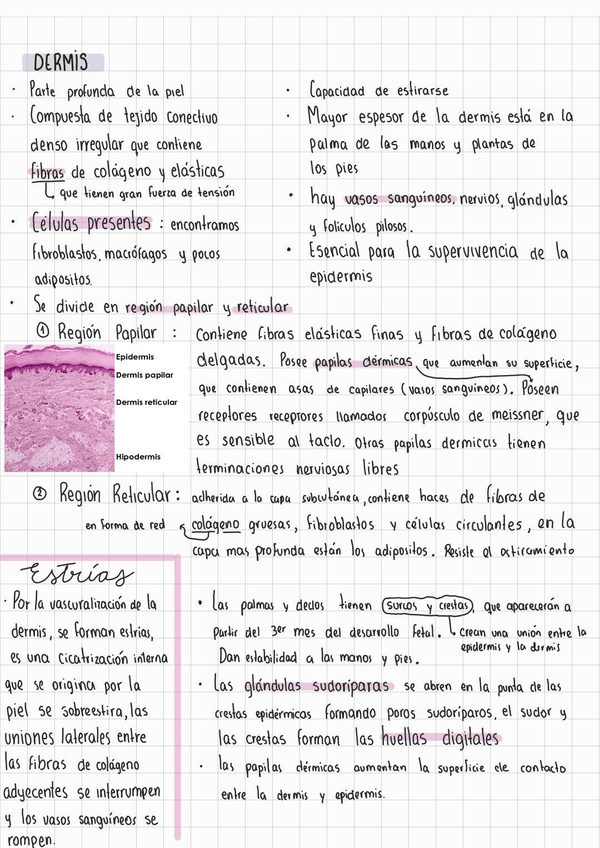 DERMIS
· Parte profunda de la piel
· Compuesta de tejido conectivo
denso irregular que contiene
fibras de colágeno y elásticas
que tienen gran fuerza de tensión
· Células presentes : encontramos
fibroblastos, macrófagos y pocos
adipositos.
· Capacidad de estirarse
· Mayor espesor de la dermis está en la
palma de las manos y plantas de
los pies
· hay vasos sanguíneos, nervios, glándulas
y folículos pilosos.
· Esencial para la supervivencia de la
epidermis
· Se divide en región papilar y reticular
① Región Papilar : Contiene fibras elásticas finas y fibras de colágeno
delgadas. Posee papilas dérmicas, que aumentan su superficie,
que contienen asas de capilares (vasos sanguíneos). Poseen
receptores receptores llamados corpúsculo de meissner, que
es sensible al tacto. Otras papilas dermicas tienen
terminaciones nerviosas libres
Epidermis
Dermis papilar
Dermis reticular
Hipodermis
② Región Reticular : adherida a la capa subcutánea, contiene haces de fibras de
en forma de red colágeno gruesas, fibroblastos y células circulantes, en la
capa mas profunda están los adipositos. Resiste al estiramiento
Estrías
· Por la vascuralización de la
dermis, se forman estrías,
es una cicatrización interna
que se origina por la
piel se sobreestira, las
uniones laterales entre
las fibras de colágeno
adyecentes se interrumpen
y los vasos sanguíneos se
rompen.
· las palmas y dedos tienen surcos y crestas, que aparecerán a
partir del 3er mes del desarrollo fetal. crean una unión entre la
epidermis y la dermis
Dan estabilidad a las manos y pies.
· las glándulas sudoríparas se abren en la punta de las
crestas epidérmicas formando poros sudoríparos, el sudor y
las crestas forman las huellas digitales
· las papilas dérmicas aumentan la superficie de contacto
entre la dermis y epidermis.